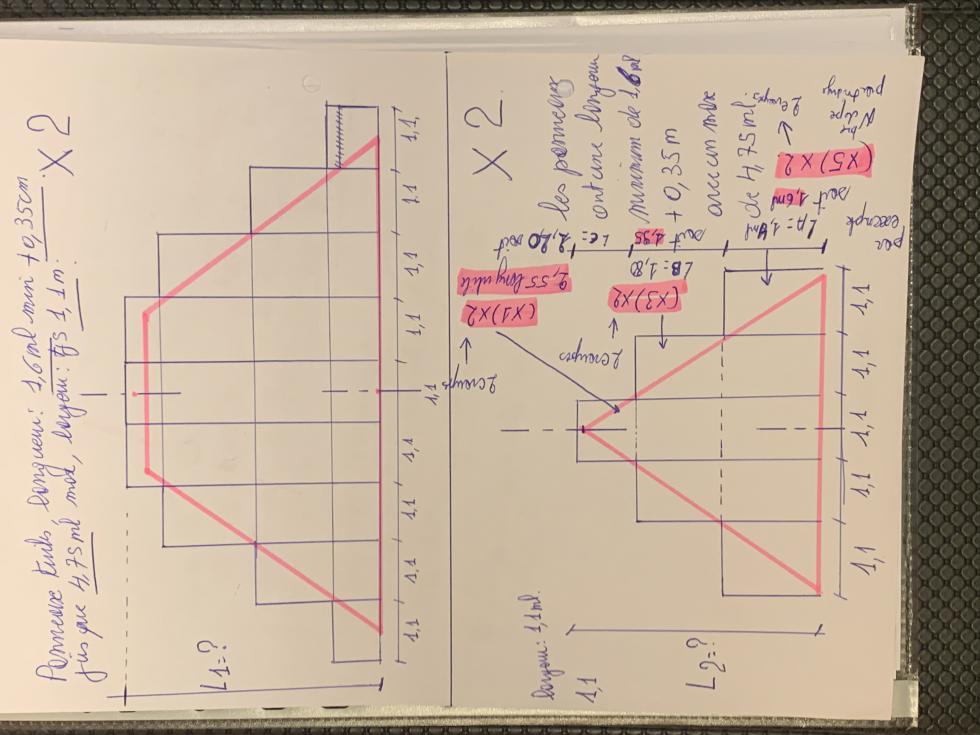 Panneaux tuiles, longueur: 1,6 ml min + 0,35cm
jusque 4,75 ml max, largeur: fs 1,1m.
X 2
L1=?
1,1
1,1
1,1
1,1
1,1
1,1
1,1
1,1
1,1
X 2
largeur: 1,1 ml.
1,1
L2=?
les panneaux
ont une longueur
minimum de 1,6 ml
+ 0,35 m
avec un max
de 4,75 ml.
2 croupes
(X1) X2
2,55 long utile
LC = 2,20 soit
2 croupes
(X3) X2
LB = 1,80
soit 1,95
par exemple
LA = 1,4 ml
soit 1,6ml
(X5) X 2
2 croupes
1,1
1,1
1,1
1,1
1,1